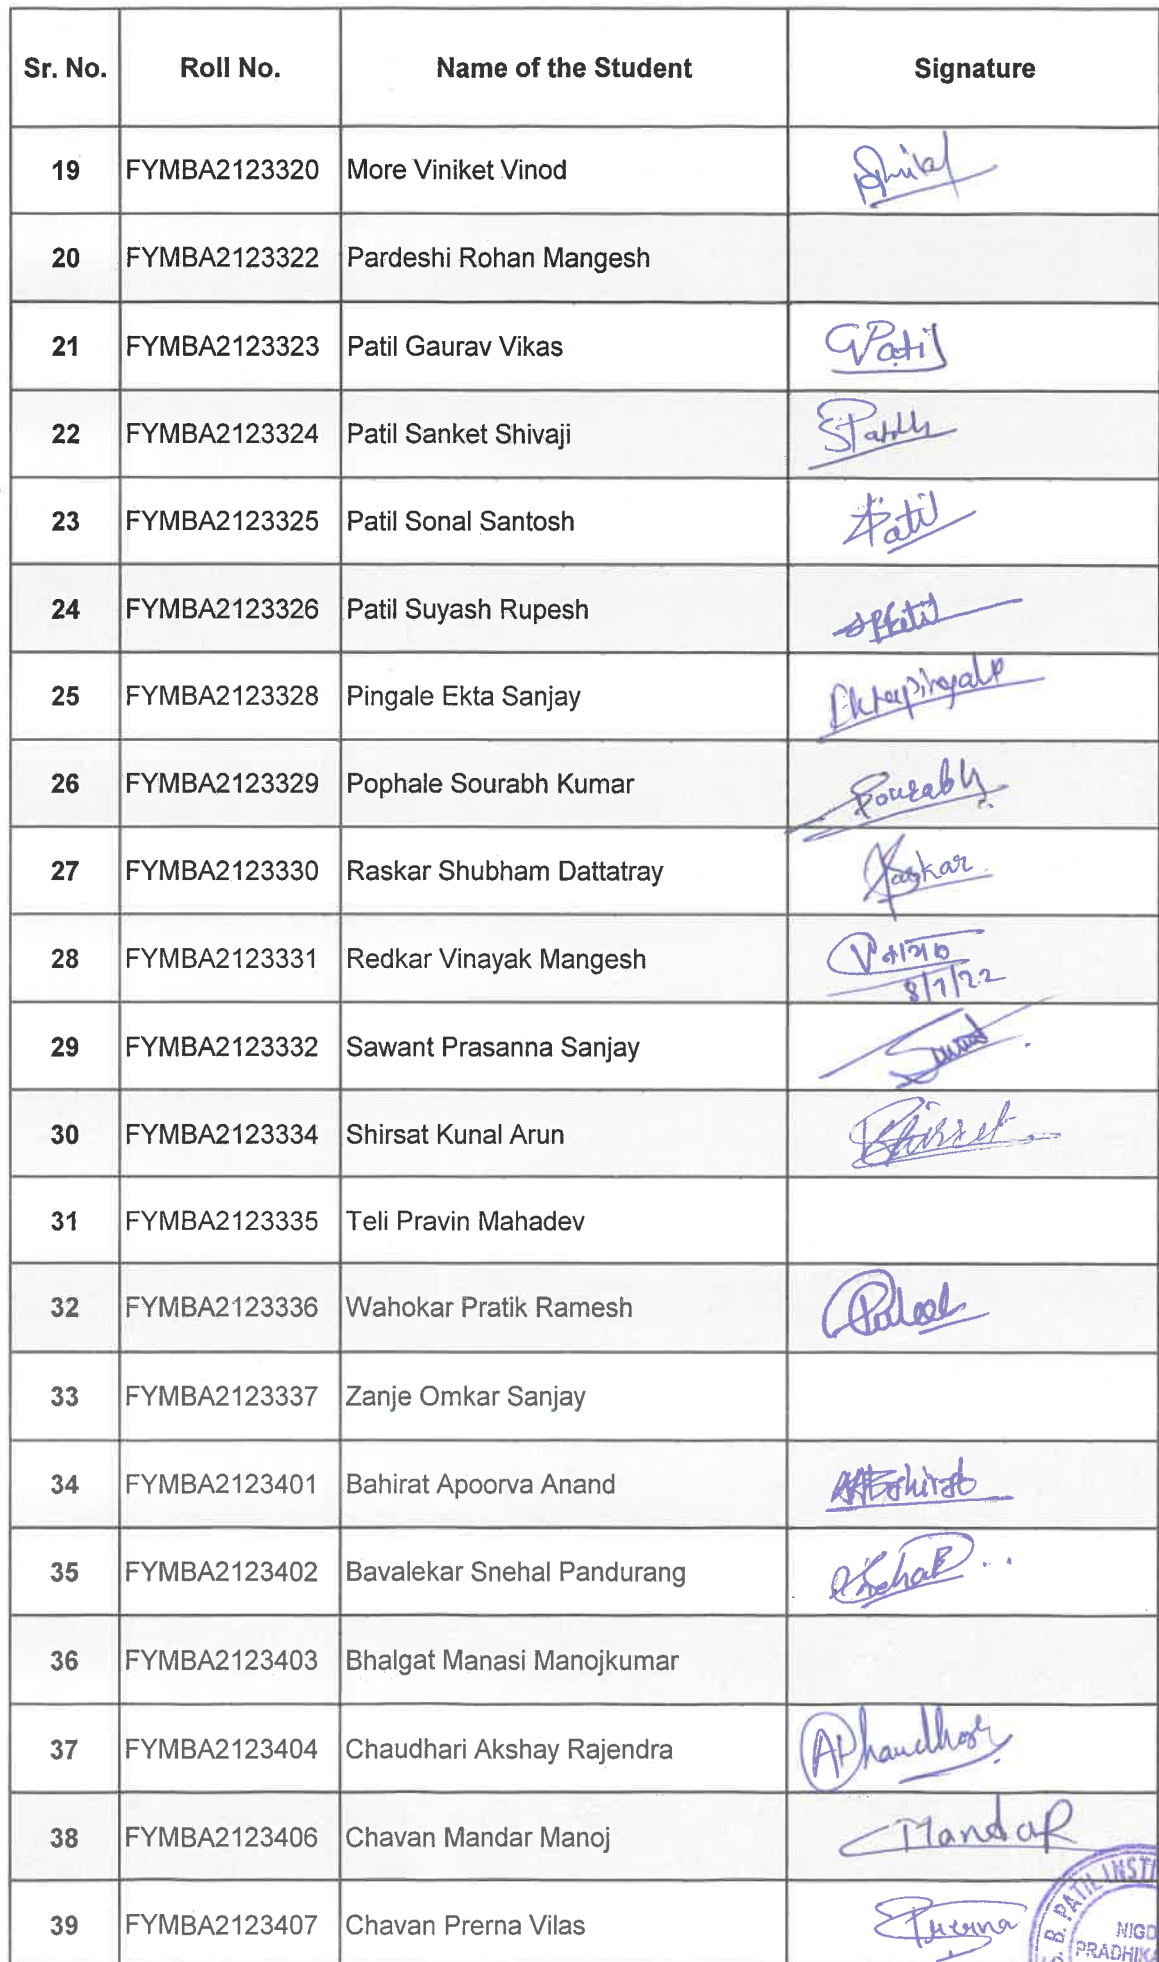 Sr. No. Roll No. Name of the Student Signature
19 FYMBA2123320 More Viniket Vinod
20 FYMBA2123322 Pardeshi Rohan Mangesh
21 FYMBA2123323 Patil Gaurav Vikas GPatil
22 FYMBA2123324 Patil Sanket Shivaji
23 FYMBA2123325 Patil Sonal Santosh Patil
24 FYMBA2123326 Patil Suyash Rupesh SPatil
25 FYMBA2123328 Pingale Ekta Sanjay Ektapingale
26 FYMBA2123329 Pophale Sourabh Kumar Sourabh
27 FYMBA2123330 Raskar Shubham Dattatray Raskar
28 FYMBA2123331 Redkar Vinayak Mangesh
8/7/22
29 FYMBA2123332 Sawant Prasanna Sanjay Sawant
30 FYMBA2123334 Shirsat Kunal Arun Shirsat
31 FYMBA2123335 Teli Pravin Mahadev
32 FYMBA2123336 Wahokar Pratik Ramesh
33 FYMBA2123337 Zanje Omkar Sanjay
34 FYMBA2123401 Bahirat Apoorva Anand AABahirat
35 FYMBA2123402 Bavalekar Snehal Pandurang
36 FYMBA2123403 Bhalgat Manasi Manojkumar
37 FYMBA2123404 Chaudhari Akshay Rajendra
38 FYMBA2123406 Chavan Mandar Manoj Mandar
39 FYMBA2123407 Chavan Prerna Vilas Prerna
B. PATIL INSTI
NIGD
PRADHIKA